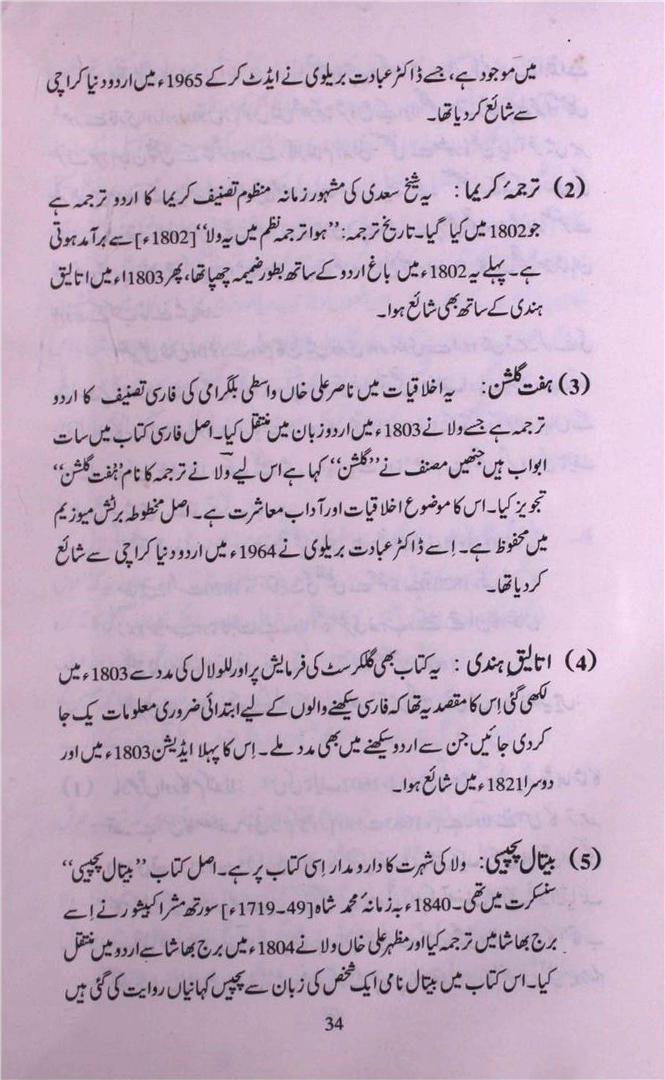 میں موجود ہے، جسے ڈاکٹر عبادت بریلوی نے ایڈٹ کر کے 1965ء میں اردو دنیا کراچی
سے شائع کر دیا تھا۔
(2) ترجمۂ کریما : یہ شیخ سعدی کی مشہور زمانہ منظوم تصنیف کریما کا اردو ترجمہ ہے
جو 1802 میں کیا گیا۔ تاریخ ترجمہ: ”ہوا ترجمہ نظم میں یہ ولا“ [1802ء] سے برآمد ہوتی
ہے۔ پہلے یہ 1802ء میں باغ اردو کے ساتھ بطور ضمیمہ چھپا تھا، پھر 1803اء میں اتالیق
ہندی کے ساتھ بھی شائع ہوا۔
(3) ہفت گلشن: یہ اخلاقیات میں ناصر علی خاں واسطی بلگرامی کی فارسی تصنیف کا اردو
ترجمہ ہے جسے ولا نے 1803ء میں اردو زبان میں منتقل کیا۔ اصل فارسی کتاب میں سات
ابواب ہیں جنھیں مصنف نے ”گلشن“ کہا ہے اس لیے ولا نے ترجمہ کا نام ’ہفت گلشن“
تجویز کیا۔ اس کا موضوع اخلاقیات اور آداب معاشرت ہے۔ اصل مخطوطہ برٹش میوزیم
میں محفوظ ہے۔ اِسے ڈاکٹر عبادت بریلوی نے 1964ء میں اردو دنیا کراچی سے شائع
کر دیا تھا۔
(4) اتالیقِ ہندی : یہ کتاب بھی گلکرسٹ کی فرمایش پر اور للولال کی مدد سے 1803ء میں
لکھی گئی اِس کا مقصد یہ تھا کہ فارسی سیکھنے والوں کے لیے ابتدائی ضروری معلومات یک جا
کردی جائیں جن سے اردو سیکھنے میں بھی مدد ملے۔ اِس کا پہلا ایڈیشن 1803ء میں اور
دوسرا 1821ء میں شائع ہوا۔
(5) بیتال پچیسی: ولا کی شہرت کا دارومدار اِسی کتاب پر ہے۔ اصل کتاب ”بیتال پچیسی“
سنسکرت میں تھی۔ 1840ء بہ زمانۂ محمد شاہ [49۔1719ء] سورتھ مشرا کبیشور نے اِسے
برج بھاشا میں ترجمہ کیا اور مظہر علی خاں ولا نے 1804ء میں برج بھاشا سے اردو میں منتقل
کیا۔ اس کتاب میں بیتال نامی ایک شخص کی زبان سے پچیس کہانیاں روایت کی گئی ہیں
34